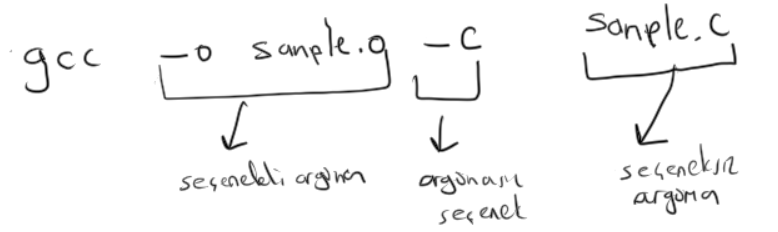 gcc -o sample.o -c sample.c
seçenekli argüman
argümansız
seçenek
seçeneksiz
argüman